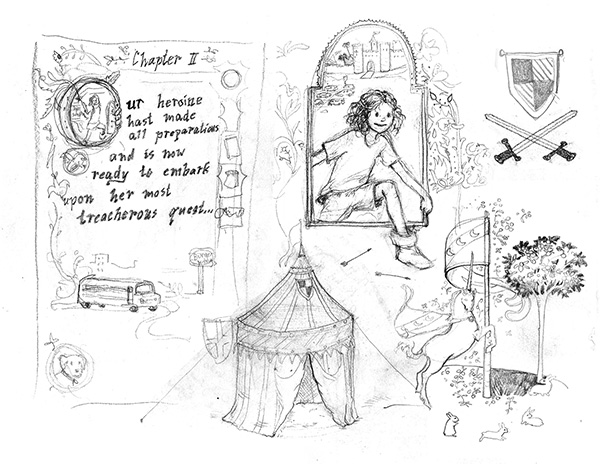 Chapter II
Our heroine
hast made
all preparations
and is now
ready to embark
upon her most
treacherous quest...